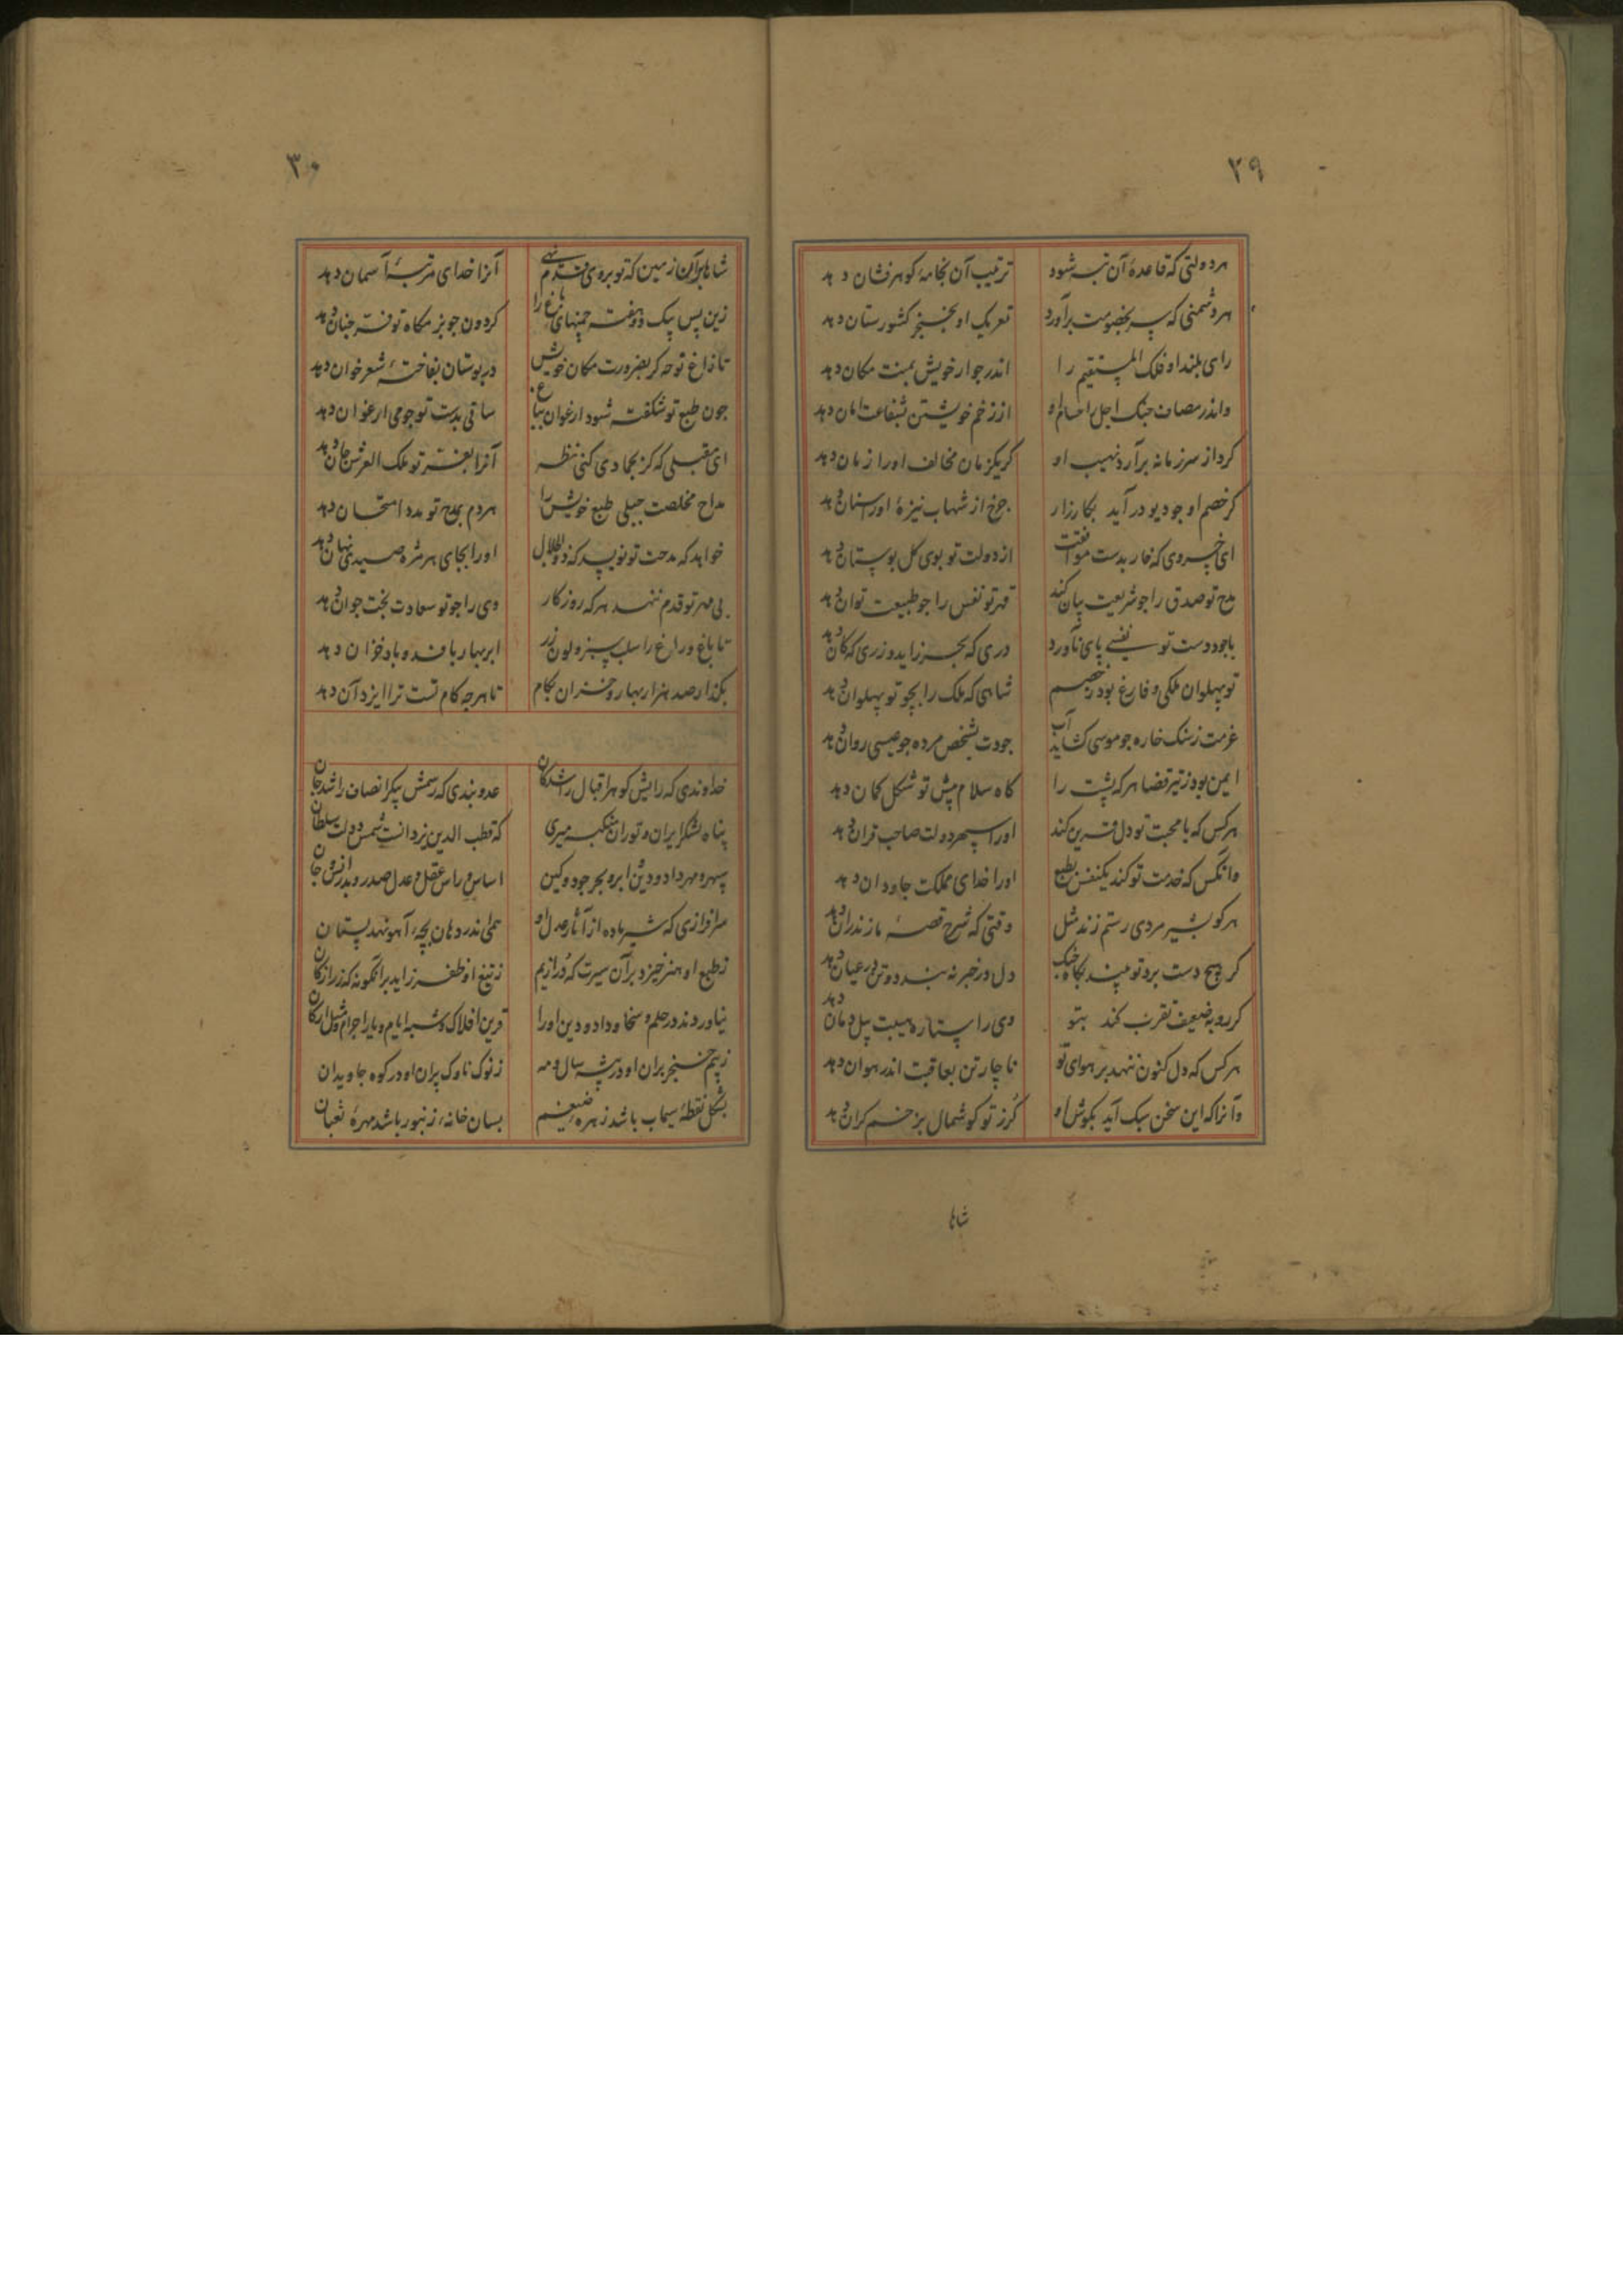 ۲۹
هر دولتی که قاعدهٔ آن تبه شود ترتیب آن بخامهٔ کوهرفشان دهد
هر دشمنی که سر بخصومت برآورد تعریک او بخنجر کشورستان دهد
رای بلند او فلک المستقیم را اندر جوار خویش بمنت مکان دهد
واندر مصاف جنک اجل را حسام او از زخم خویشتن بشفاعت امان دهد
کرد از سر زمانه برآرد نهیب او کر یکزمان مخالف او را زمان دهد
کر خصم او جو دیو درآید بکارزار جرخ از شهاب نیزهٔ او را سنان دهد
ای خسروی که خار بدست موافقت از دولت تو بوی کل بوستان دهد
مدح تو صدق را جو شریعت بیان کند قهر تو نفس را جو طبیعت توان دهد
با جود دست تو نفسی پای ناورد دری که بحر زاید و زری که کان دهد
تو پهلوان ملکی و فارغ بود ز خصم شاهی که ملک را بجو تو پهلوان دهد
عزمت ز سنک خاره جو موسی کشاید آب جودت بشخص مرده جو عیسی روان دهد
ایمن بود ز تیر قضا هر که پشت را کاه سلام پیش تو شکل کمان دهد
هر کس که با محبت تو دل قرین کند او را سپهر دولت صاحب قران دهد
وانکس که خدمت تو کند یکنفس بطبع او را خدای مملکت جاودان دهد
هر کو بشیرمردی رستم زند مثل وقتی که شرح قصهٔ مازندران دهد
کر هیچ دست برد تو بیند بکاه جنک دل در خبر نه بندد و تن در عیان دهد
کر روبه ضعیف تقرب کند بتو وی را ستاره هیبت پیل دمان دهد
هر کس که دل کنون ننهد بر هوای تو ناچار تن بعاقبت اندر هوان دهد
وآنرا که این سخن سبک آید بکوش او کرز تو کوشمال بزخم کران دهد
شاها
۳۰
شاها برآن زمین که تو بروی قدم نهی آنرا خدای مرتبهٔ آسمان دهد
زین پس بیک دو هفته چمنهای باغ را کردون جو بزمکاه تو فر جنان دهد
تا زاغ نوحه کر بضرورت مکان خویش در بوستان بفاختهٔ شعرخوان دهد
جون طبع تو شکفته شود ارغوان بباغ ساقی بدست تو جو می ارغوان دهد
ای مقبلی که کر بجمادی کنی نظر آنرا بفر تو ملک العرش جان دهد
مداح مخلصت جبلی طبع خویش را هر دم بمدح تو مدد امتحان دهد
خواهد که مدحت تو نویسد که ذوالجلال او را بجای هر مژه صد دهد
بی مهر تو قدم ننهد هر که روزکار وی را جو تو سعادت بخت جوان دهد
تا باغ و راغ را سلب سبز و لون زر ابر بهار بافد و باد خزان دهد
بکذار صد هزار بهار و خزان بکام تا هرجه کام تست ترا ایزد آن دهد
خداوندی که رایش کوهر اقبال را شد کان عدوبندی که رسمش پیکر انصاف را شد جان
پناه لشکر ایران و توران که قطب الدین یزدانست شمس دولت سلطان
سپهر و مهر داد و دین و ابر و بحر جود و کین اساس و راس عقل و عدل و صدر و بدر
سرافرازی که شیر ماده از آثار عدل او همی اندر دهان بجهٔ آهو نهد پستان
ز طبع او هنر خیزد برآن سیرت که در از یم ز تیغ او ظفر زاید برانکونه که زر از کان
نیاوردند در حلم و سخا و داد و دین او را قرین افلاک و شبه ایام و یار اجرام و مثل ارکان
ز بیم خنجر بران او در بیشه سال و مه ز نوک ناوک پران او در کوه جاویدان
بشکل نقطهٔ سیماب باشد زهرهٔ ضیغم بسان خانهٔ زنبور باشد مهرهٔ ثعبان